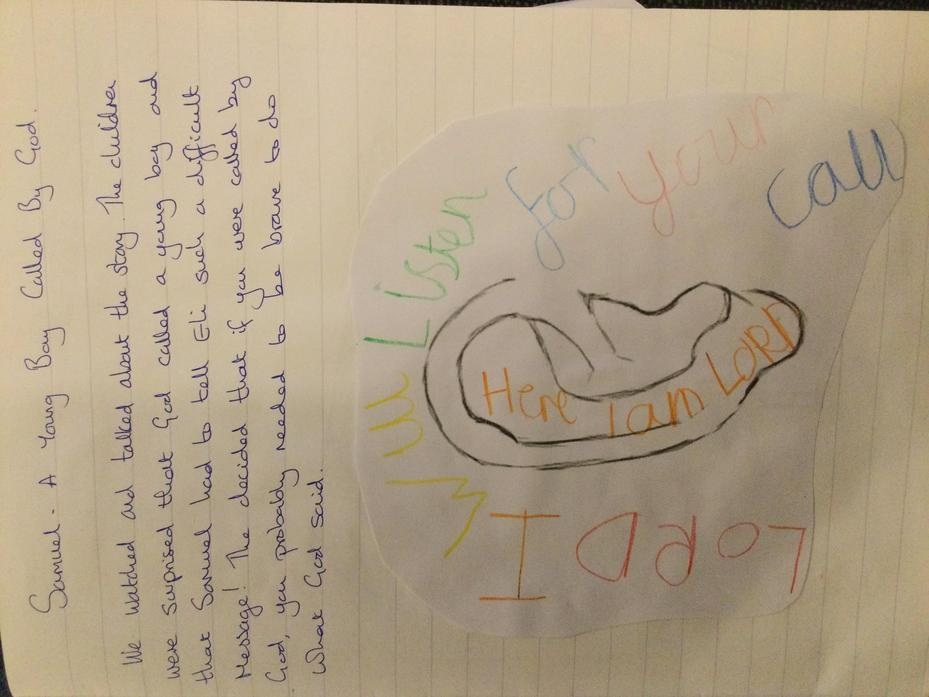 Samuel - A Young Boy Called By God.
We watched and talked about the story. The children
were surprised that God called a young boy and
that Samuel had to tell Eli such a difficult
Message! The decided that if you were called by
God, you probably needed to be brave to do
what God said.
LORD I
will Listen
for
your
call
Here I am LORD